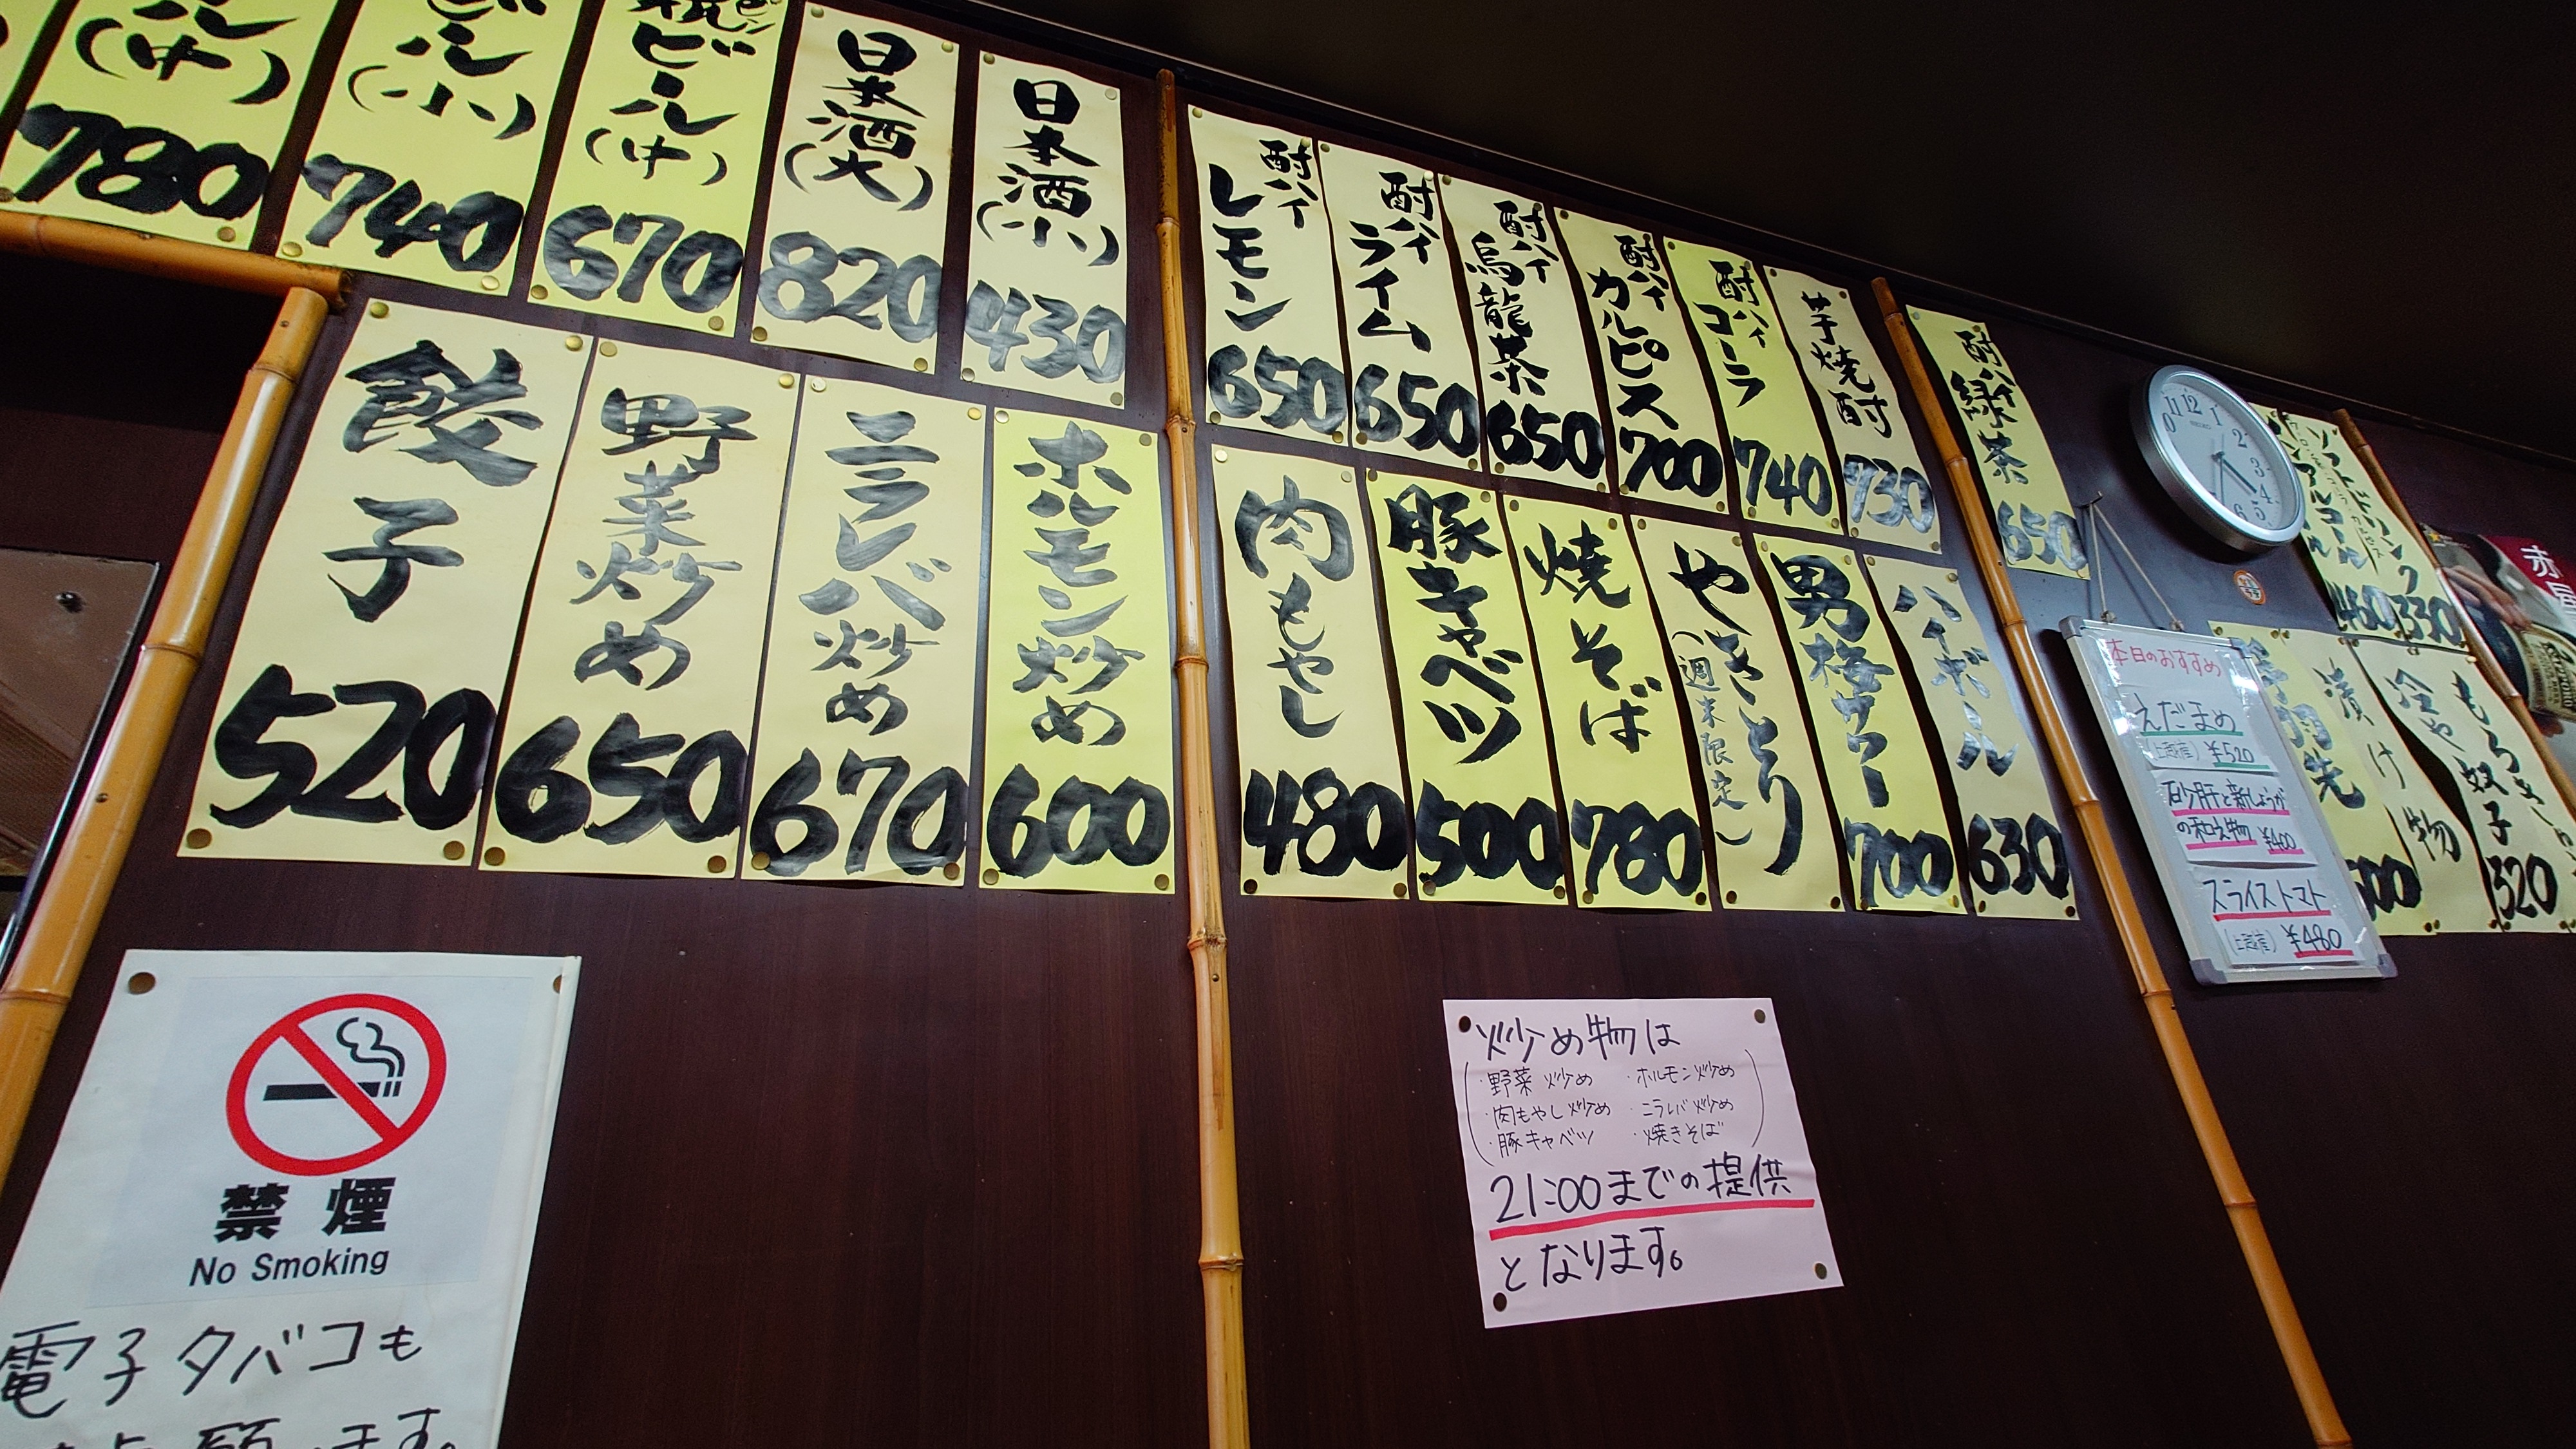 ビール
(中)
780
ビール
(小)
740
ビール
(中)
670
日本酒
(大)
820
日本酒
(小)
430
酎ハイ
レモン
650
酎ハイ
ライム
650
酎ハイ
烏龍茶
650
酎ハイ
カルピス
700
酎ハイ
コーラ
740
芋焼酎
730
酎ハイ
緑茶
650
ソフトドリンク
330
ノンアルコール
460
餃子
520
野菜炒め
650
ニラレバ炒め
670
ホルモン炒め
600
肉もやし
480
豚キャベツ
500
焼そば
780
やきとり
(週末限定)
男梅サワー
700
ハイボール
630
本日のおすすめ
えだまめ
¥520
砂肝と新しょうが
の和え物 ¥400
スライストマト
¥480
漬け物
冷や奴
もろきゅう
320
禁煙
No Smoking
電子タバコも
炒め物は
・野菜炒め ・ホルモン炒め
・肉もやし炒め ・ニラレバ炒め
・豚キャベツ ・焼きそば
21:00までの提供
となります。